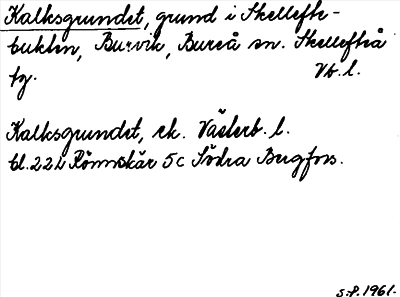 Kalksgrundet, grund i Skellefte-
bukten, Burvik, Bureå sn. Skellefteå
tg. Vb. l.
Kalksgrundet, ek. Västerb. l.
bl. 22 L Rönnskär 5 c Södra Bergfors.
S.P. 1961.